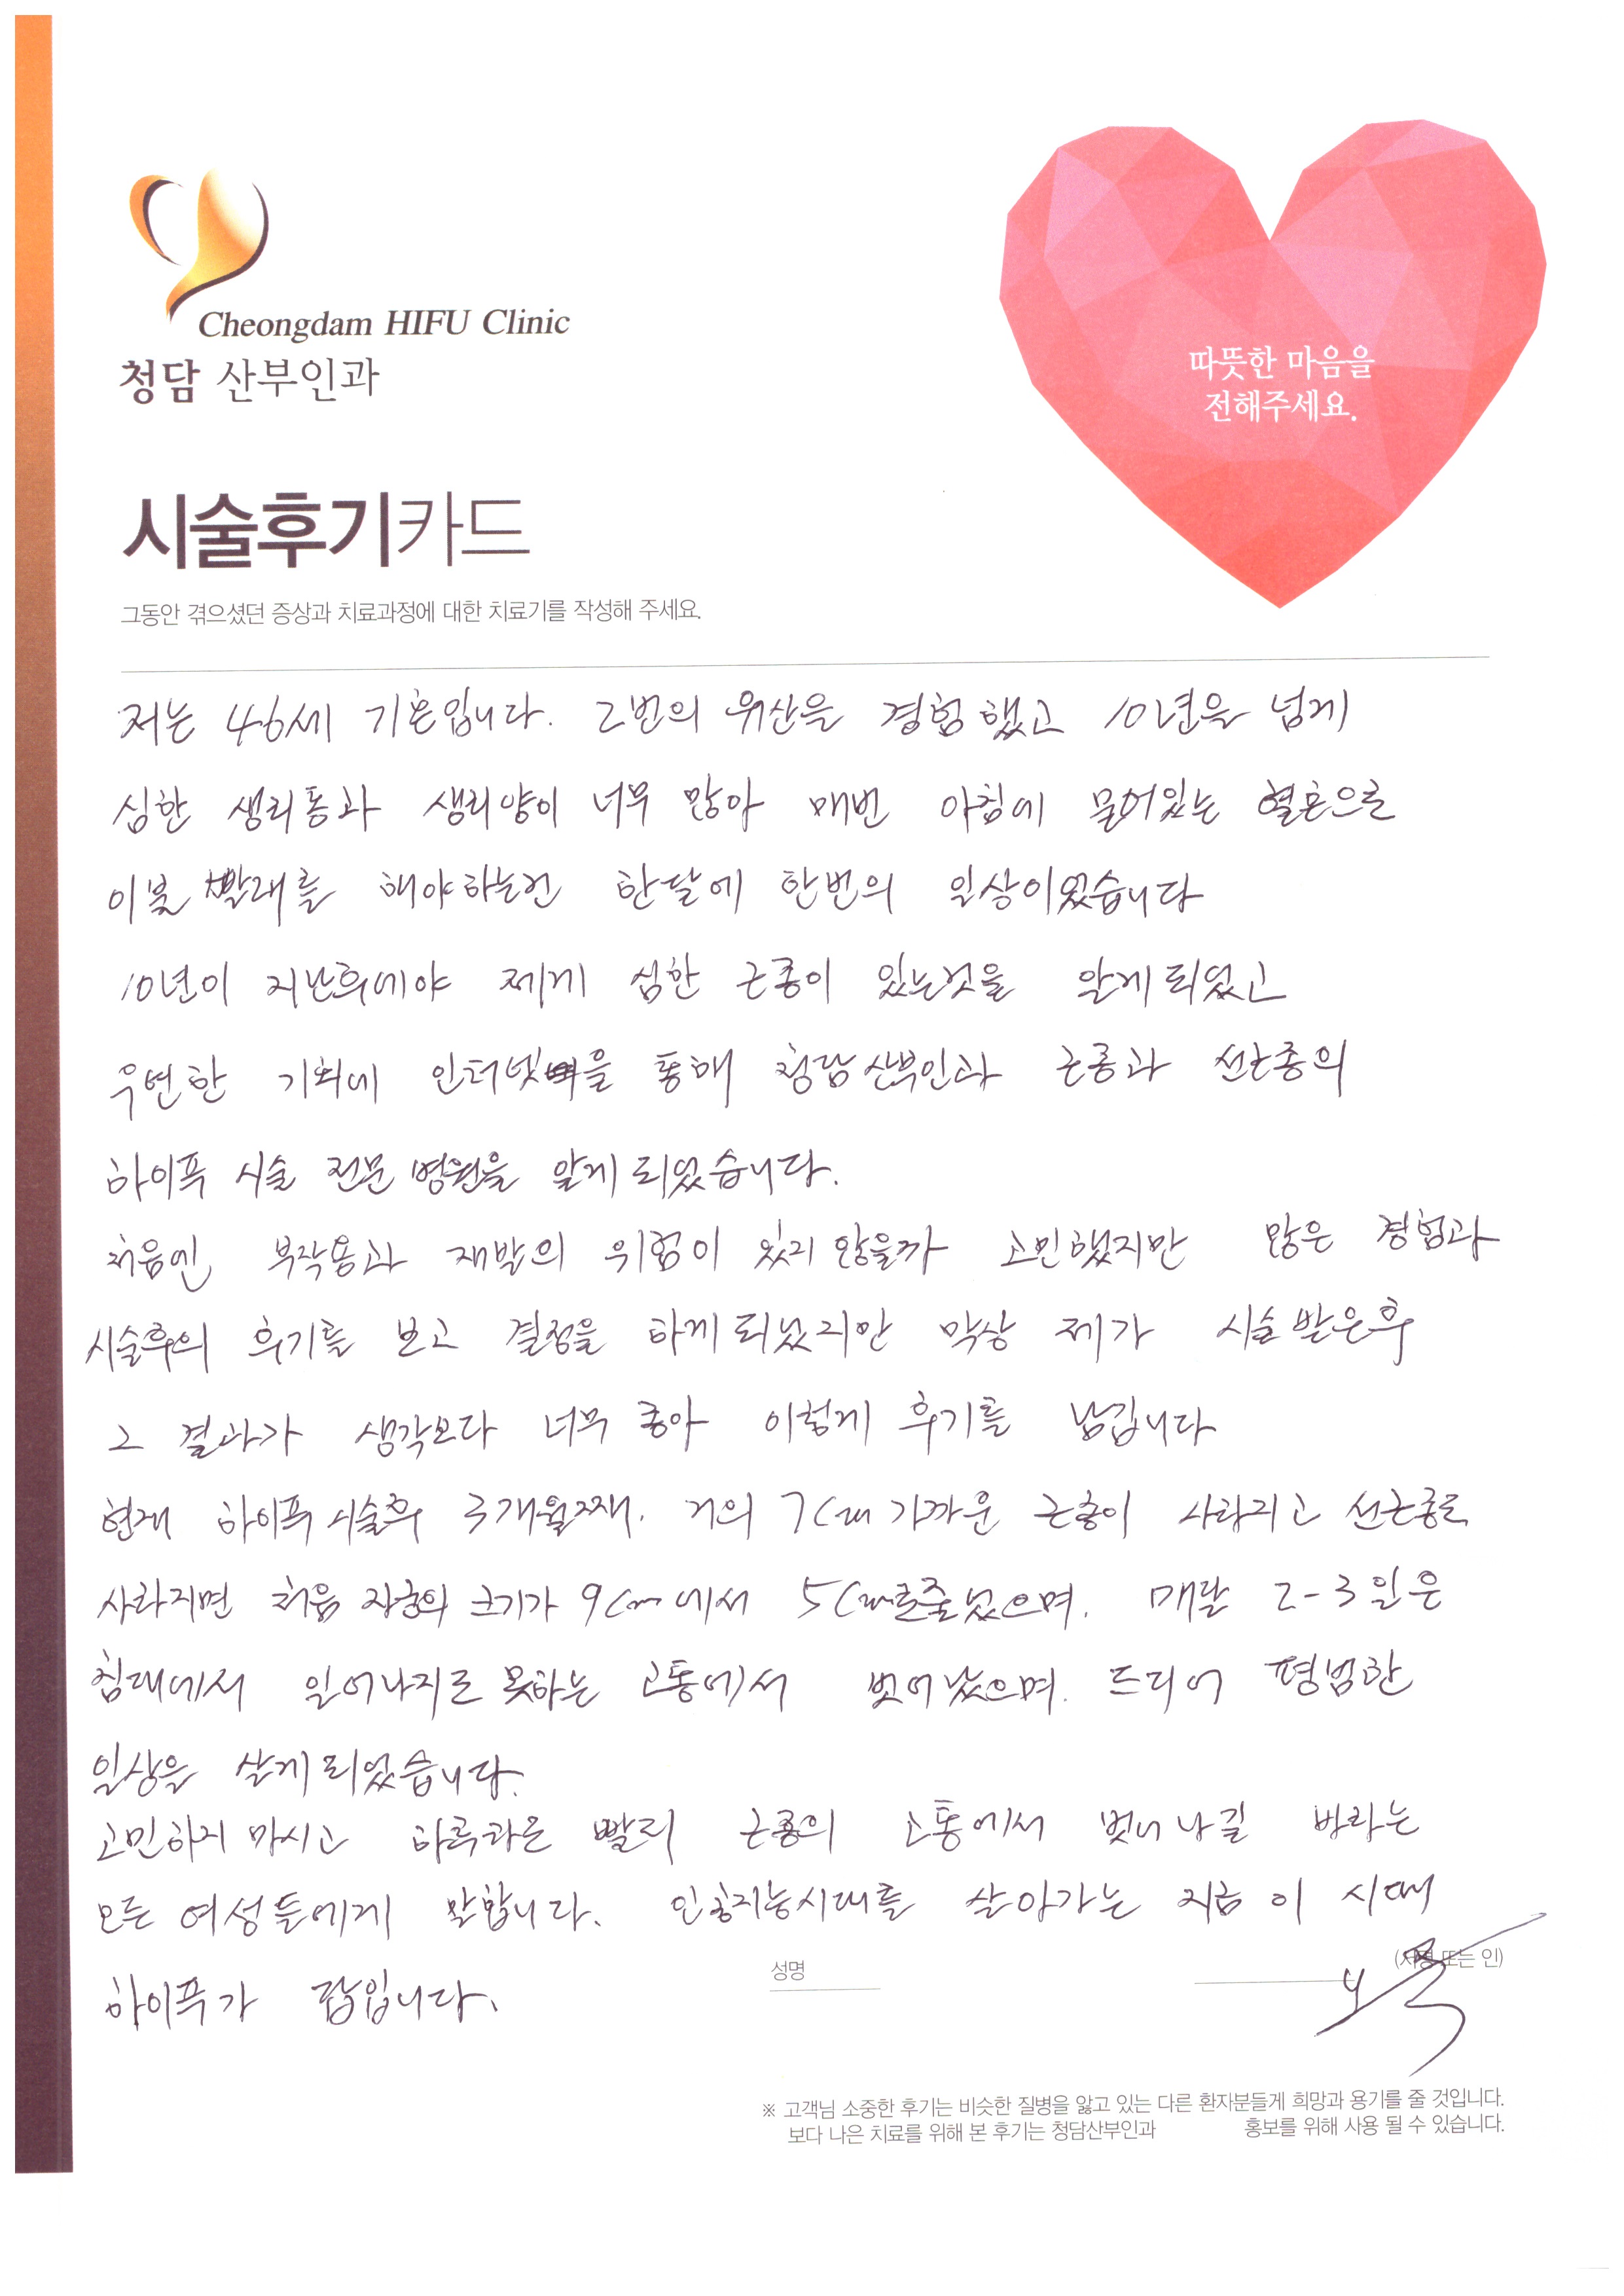 Cheongdam HIFU Clinic
청담 산부인과
따뜻한 마음을
전해주세요.
시술후기카드
그동안 겪으셨던 증상과 치료과정에 대한 치료기를 작성해 주세요.
저는 46세 기혼입니다. 2번의 유산을 경험했고 10년을 넘게
심한 생리통과 생리양이 너무 많아 매번 아침에 묻어있는 혈흔으로
이불 빨래를 해야하는건 한달에 한번의 일상이었습니다
10년이 지난후에야 제게 심한 근종이 있는것을 알게되었고
우연한 기회에 인터넷을 통해 청담산부인과 근종과 선근종의
하이푸 시술 전문 병원을 알게 되었습니다.
처음엔 부작용과 재발의 위험이 있지 않을까 고민했지만 많은 경험과
시술후의 후기를 보고 결정을 하게되었지만 막상 제가 시술받은후
그 결과가 생각보다 너무 좋아 이렇게 후기를 남깁니다
현재 하이푸시술후 3개월째. 거의 7cm 가까운 근종이 사라지고 선근종도
사라지면 처음 자궁의 크기가 9cm에서 5cm로줄었으며. 매달 2-3일은
침대에서 일어나지도 못하는 고통에서 벗어났으며. 드디어 평범한
일상을 살게되었습니다.
고민하지 마시고 하루라도 빨리 근종의 고통에서 벗어나길 바라는
모든 여성들에게 말합니다. 인공지능시대를 살아가는 지금 이 시대
하이푸가 답입니다.
성명 (서명 또는 인)
※ 고객님 소중한 후기는 비슷한 질병을 앓고 있는 다른 환자분들게 희망과 용기를 줄 것입니다.
보다 나은 치료를 위해 본 후기는 청담산부인과 홍보를 위해 사용 될 수 있습니다.